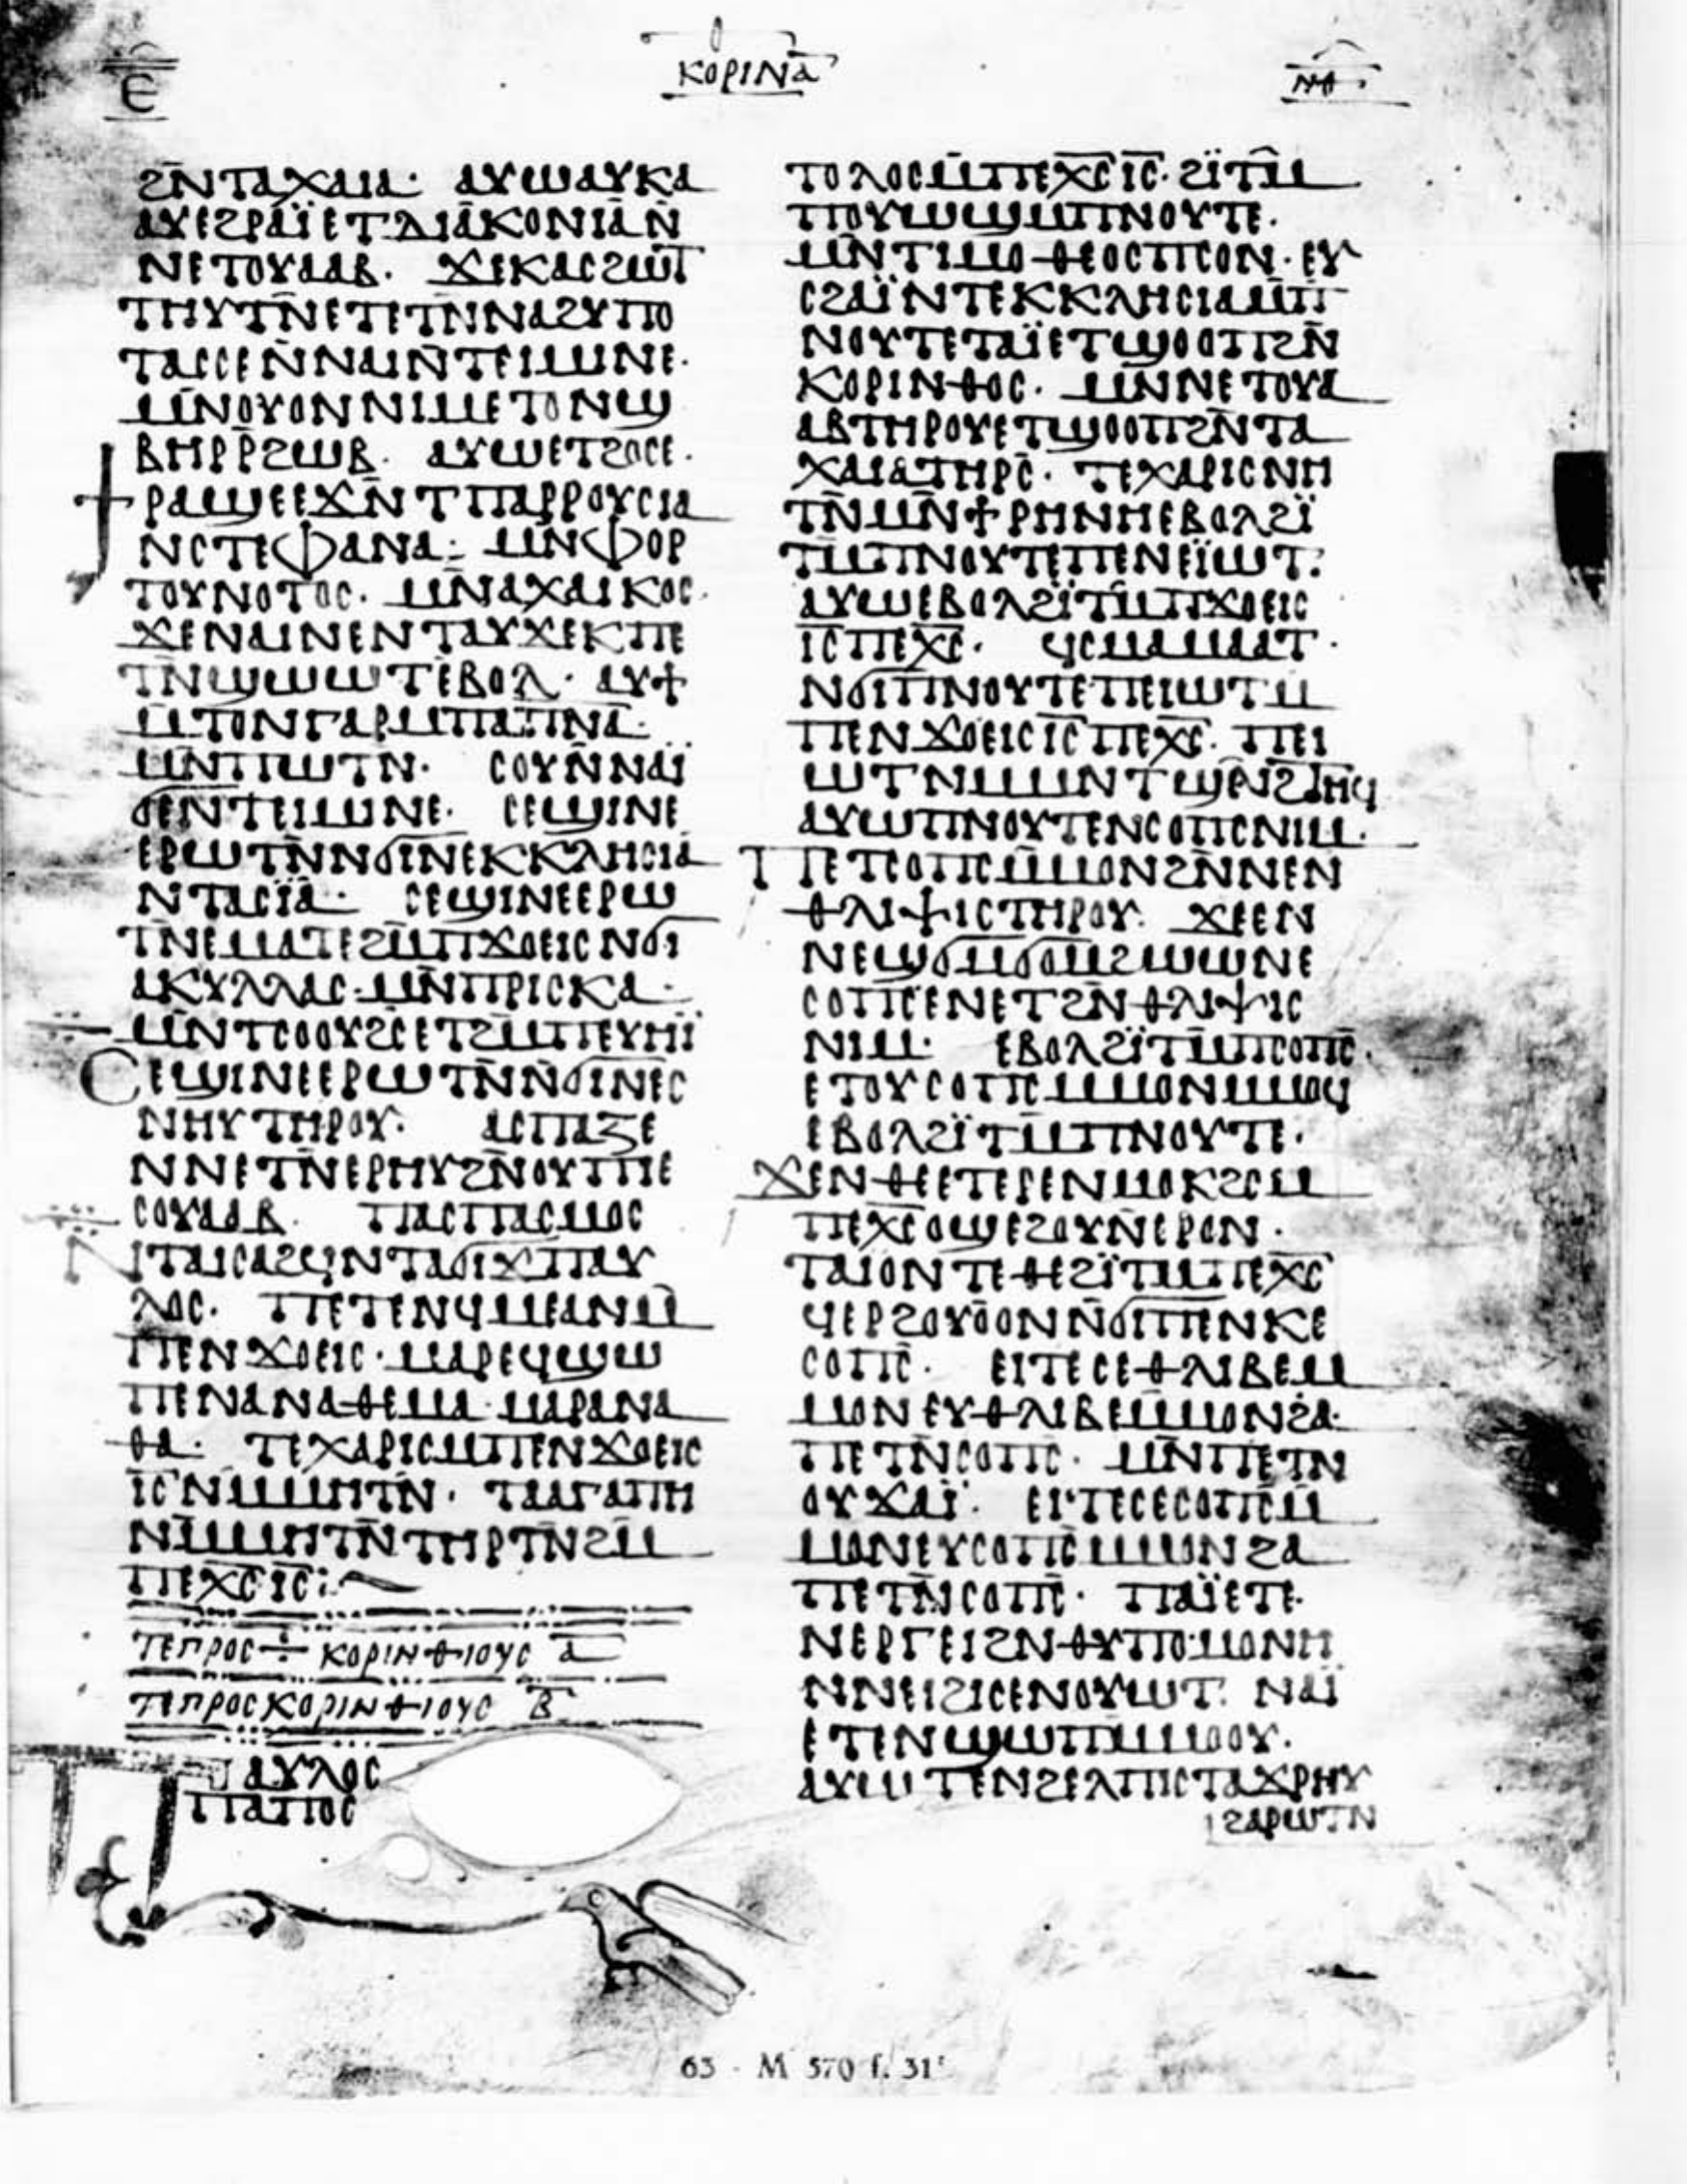 ⲉ̄
ⲕⲟⲣⲓⲛ ⲁ̄
ⲛⲑ
ϩⲛ̄ⲧⲁⲭⲁⲓⲁ· ⲁⲩⲱⲁⲩⲕⲁ
ⲁⲩⲉϩⲣⲁⲓ̈ⲉⲧⲇⲓⲁⲕⲟⲛⲓⲁⲛ̄
ⲛⲉⲧⲟⲩⲁⲁⲃ· ϫⲉⲕⲁⲥϩⲱⲧ
ⲧⲏⲩⲧⲛ̄ⲉⲧⲉⲧⲛ̄ⲛⲁϩⲩⲡⲟ
ⲧⲁⲥⲥⲉⲛ̄ⲛⲁⲓⲛ̄ⲧⲉⲓⲙⲓⲛⲉ·
ⲙⲛ̄ⲟⲩⲟⲛⲛⲓⲙⲉⲧⲟⲛϣ
ⲃⲏⲣⲣ̄ϩⲱⲃ· ⲁⲩⲱⲉⲧϩⲟⲥⲉ·
ϯⲣⲁϣⲉⲉϫⲛ̄ⲧⲡⲁⲣⲣⲟⲩⲥⲓⲁ
ⲛⲥⲧⲉⲫⲁⲛⲁ: ⲙⲛⲫⲟⲣ
ⲧⲟⲩⲛⲟⲧⲟⲥ· ⲙⲛ̄ⲁⲭⲁⲓⲕⲟⲥ·
ϫⲉⲛⲁⲓⲛⲉⲛⲧⲁⲩϫⲉⲕⲡⲉ
ⲧⲛ̄ϣⲱⲱⲧⲉⲃⲟⲗ· ⲁⲩϯ
ⲙⲧⲟⲛⲅⲁⲣⲙⲡⲁⲡⲛ̄ⲁ̄·
ⲙⲛ̄ⲡⲱⲧⲛ· ⲥⲟⲩⲛ̄ⲛⲁⲓ̈
ϭⲉⲛ̄ⲧⲉⲓⲙⲓⲛⲉ· ⲥⲉϣⲓⲛⲉ
ⲉⲣⲱⲧⲛ̄ⲛϭⲓⲛⲉⲕⲕⲗⲏⲥⲓⲁ
ⲛⲧⲁⲥⲓ̈ⲁ· ⲥⲉϣⲓⲛⲉⲉⲣⲱ
ⲧⲛⲉⲙⲁⲧⲉϩⲙ̄ⲡϫⲟⲉⲓⲥⲛϭⲓ
ⲁⲕⲩⲗⲗⲁⲥ·ⲙⲛ̄ⲡⲣⲓⲥⲕⲁ·
ⲙⲛ̄ⲧⲥⲟⲟⲩϩⲥⲉⲧϩⲙ̄ⲡⲉⲩⲏⲓ̈
ⲥⲉϣⲓⲛⲉⲉⲣⲱⲧⲛ̄ⲛ̄ϭⲓⲛⲉⲥ
ⲛⲏⲩⲧⲏⲣⲟⲩ· ⲁⲥⲡⲁⲍⲉ
ⲛⲛⲉⲧⲛ̄ⲉⲣⲏⲩϩⲛ̄ⲟⲩⲡⲓⲉ
ⲥⲟⲩⲁⲁⲃ· ⲡⲁⲥⲡⲁⲥⲙⲟⲥ
ⲛⲧⲁⲓⲥⲁϩϥⲛⲧⲁϭⲓϫⲡⲁⲩ
ⲗⲟⲥ· ⲡⲉⲧⲉⲛϥⲙⲉⲁⲛⲙ̄
ⲡⲉⲛϫⲟⲉⲓⲥ·ⲙⲁⲣⲉϥϣⲱ
ⲡⲉⲛⲁⲛⲁⲑⲉⲙⲁ·ⲙⲁⲣⲁⲛⲁ
ⲑⲁ· ⲧⲉⲭⲁⲣⲓⲥⲙⲡⲉⲛϫⲟⲉⲓⲥ
ⲓ̄ⲥ̄ⲛⲙⲙⲏⲧⲛ̄· ⲧⲁⲁⲅⲁⲡⲏ
ⲛⲙ̄ⲙⲏⲧⲛ̄ⲧⲏⲣⲧⲛ̄ϩⲙ̄
ⲡⲉⲭ̄ⲥ̄ⲓ̄ⲥ̄:
ⲧⲉⲡⲣⲟⲥ÷ ⲕⲟⲣⲓⲛⲑⲓⲟⲩⲥ ⲁ̄
ⲧⲉⲡⲣⲟⲥⲕⲟⲣⲓⲛⲑⲓⲟⲩⲥ ⲃ̄
ⲡⲁⲩⲗⲟⲥ
ⲡⲁⲡⲟⲥ
ⲧⲟⲗⲟⲥⲙ̄ⲡⲉⲭ̄ⲥ̄ⲓ̄ⲥ̄·ϩⲓ̈ⲧⲙ̄
ⲡⲟⲩⲱϣⲙ̄ⲡⲛⲟⲩⲧⲉ·
ⲙⲛ̄ⲧⲓⲙⲟⲑⲉⲟⲥⲡⲥⲟⲛ·ⲉⲩ
ⲥϩⲁⲓ̈ⲛⲧⲉⲕⲕⲗⲏⲥⲓⲁⲙⲡ̄
ⲛⲟⲩⲧⲉⲧⲁⲓ̈ⲉⲧϣⲟⲟⲡϩⲛ̄
ⲕⲟⲣⲓⲛⲑⲟⲥ· ⲙⲛ̄ⲛⲉⲧⲟⲩⲁ
ⲁⲃⲧⲏⲣⲟⲩⲉⲧϣⲟⲟⲡϩⲛ̄ⲧⲁ
ⲭⲁⲓⲁⲧⲏⲣⲥ̄· ⲧⲉⲭⲁⲣⲓⲥⲛⲏ
ⲧⲛ̄ⲙⲛ̄ϯⲣⲏⲛⲏⲉⲃⲟⲗϩⲓ̈
ⲧⲙ̄ⲡⲛⲟⲩⲧⲉⲡⲉⲛⲉⲓ̈ⲱⲧ:
ⲁⲩⲱⲉⲃⲟⲗϩⲓ̈ⲧⲙ̄ⲡϫⲟⲉⲓⲥ
ⲓ̄ⲥ̄ⲡⲉⲭ̄ⲥ̄· ϥⲥⲙⲁⲙⲁⲁⲧ·
ⲛϭⲓⲡⲛⲟⲩⲧⲉⲡⲉⲓⲱⲧⲙ
ⲡⲉⲛϫⲟⲉⲓⲥⲓ̄ⲥ̄ⲡⲉⲭ̄ⲥ̄· ⲡⲉⲓ
ⲱⲧⲛⲙⲙⲛⲧϣⲛ̄ϩⲧⲏϥ
ⲁⲩⲱⲡⲛⲟⲩⲧⲉⲛⲥⲟⲡⲥⲛⲓⲙ·
ⲡⲉⲧⲥⲟⲡⲥⲙ̄ⲙⲟⲛϩⲛ̄ⲛⲉⲛ
ⲑⲗⲓⲯⲓⲥⲧⲏⲣⲟⲩ· ϫⲉⲉⲛ
ⲛⲉϣϭⲙϭⲟⲙϩⲱⲱⲛⲉ
ⲥⲟⲡⲥⲉⲛⲉⲧϩⲛ̄ⲑⲗⲓⲯⲓⲥ
ⲛⲓⲙ· ⲉⲃⲟⲗϩⲓ̈ⲧⲙ̄ⲡⲥⲟⲡⲥ̄·
ⲉⲧⲟⲩⲥⲟⲡⲥⲙⲙⲟⲛⲙⲙⲟϥ
ⲉⲃⲟⲗϩⲓ̈ⲧⲙ̄ⲡⲛⲟⲩⲧⲉ·
ϫⲉⲛⲑⲉⲉⲧⲉⲣⲉⲛⲙⲟⲕϩⲥⲙ
ⲡⲉⲭ̄ⲥ̄ⲟϣⲉϩⲟⲩⲛ̄ⲉⲣⲟⲛ·
ⲧⲁⲓⲟⲛⲧⲉⲑⲉϩⲓ̈ⲧⲙ̄ⲡⲉⲭ̄ⲥ̄
ϥⲉⲣϩⲟⲩⲟⲟⲛⲛ̄ϭⲓⲡⲉⲛⲕⲉ
ⲥⲟⲡⲥ̄· ⲉⲓⲧⲉⲥⲉⲑⲗⲓⲃⲉⲙ
ⲙⲟⲛⲉⲩⲑⲗⲓⲃⲉⲙⲙⲟⲛϩⲁ·
ⲡⲉⲧⲛ̄ⲥⲟⲡⲥ· ⲙⲛ̄ⲡⲉⲧⲛ
ⲟⲩϫⲁⲓ̈· ⲉⲓⲧⲉⲥⲉⲥⲟⲡⲥ̄ⲙ̄
ⲙⲟⲛⲉⲩⲥⲟⲡⲥ̄ⲙⲙⲟⲛϩⲁ
ⲡⲉⲧⲛ̄ⲥⲟⲡⲥ̄· ⲡⲁⲓ̈ⲉⲧⲉ·
ⲛⲉⲣⲅⲉⲓϩⲛⲑⲩⲡⲟⲙⲟⲛⲏ
ⲛⲛⲉⲓϩⲓⲥⲉⲛⲟⲩⲱⲧ· ⲛⲁⲓ̈
ⲉⲧⲉⲛϣⲱⲡⲙⲙⲟⲟⲩ·
ⲁⲩⲱⲧⲉⲛϩⲉⲗⲡⲓⲥⲧⲁϫⲣⲏⲩ
ϩⲁⲣⲱⲧⲛ
63 · M 570 f. 31ʳ